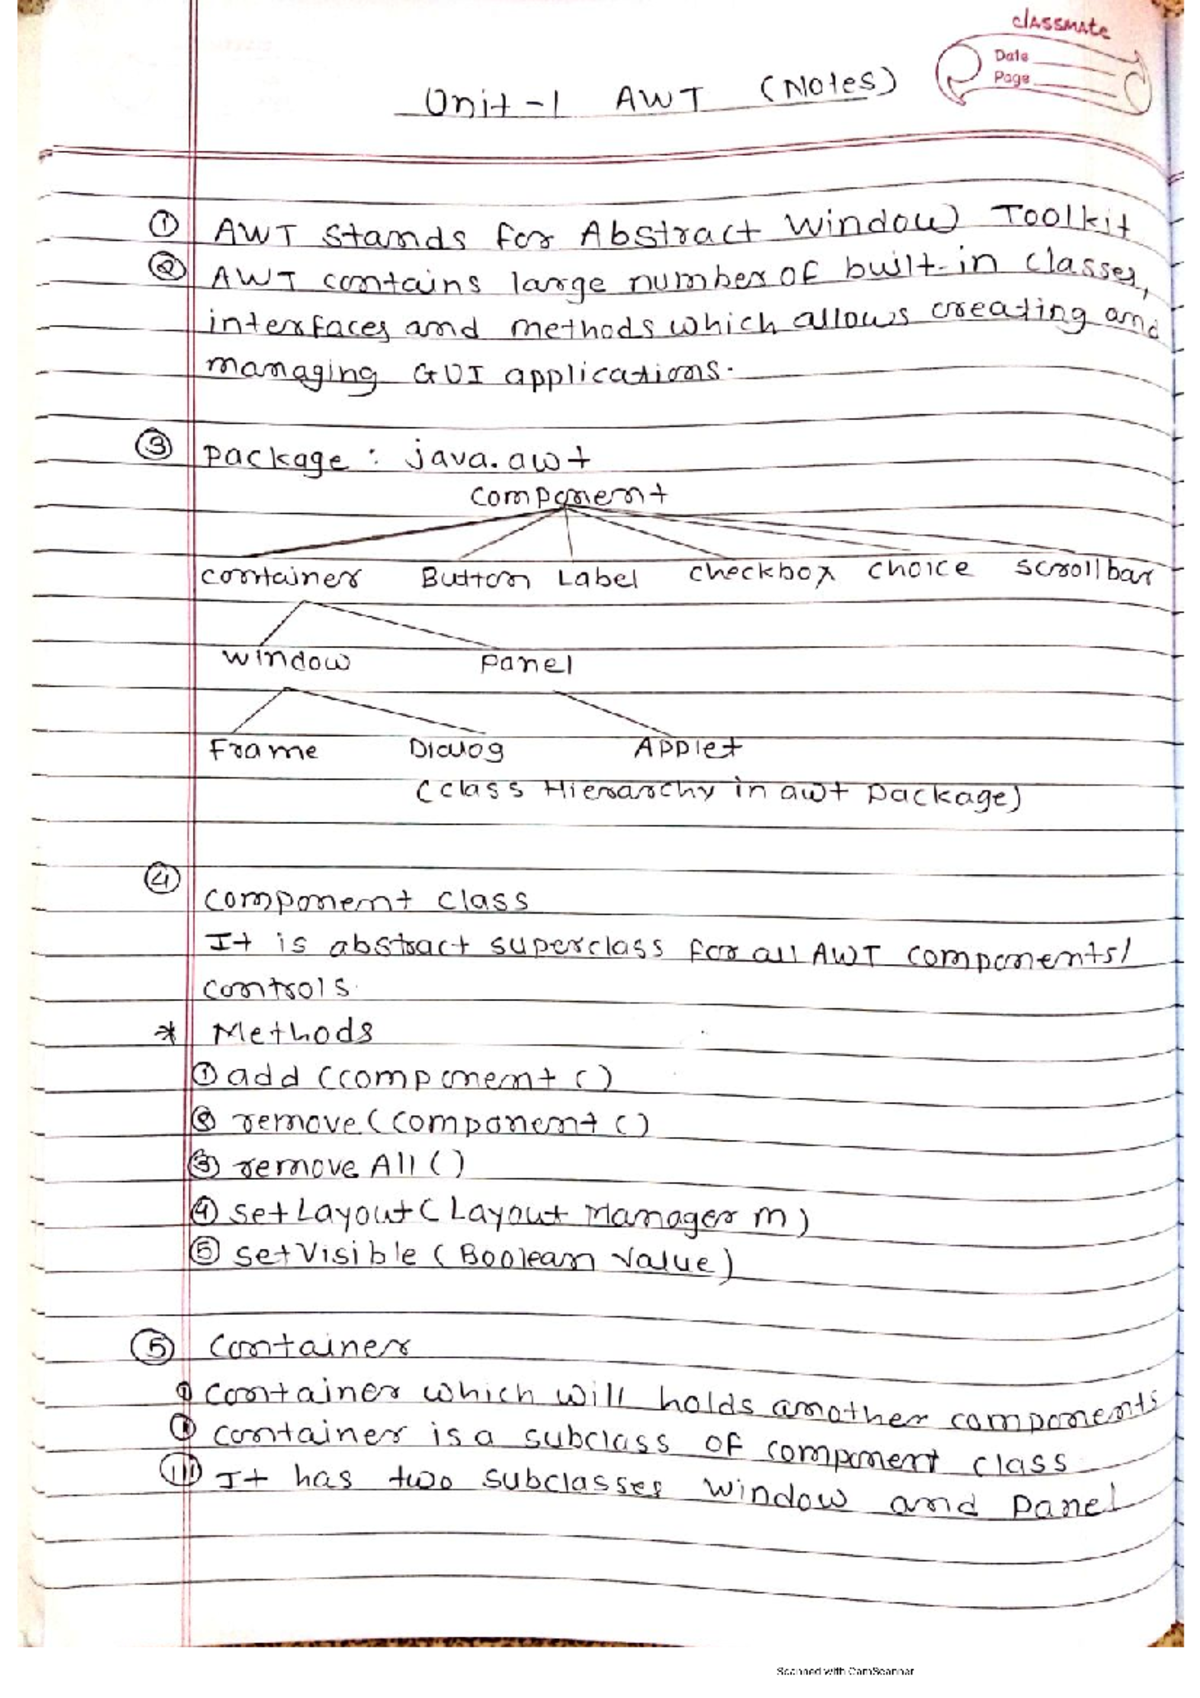 classmate
Date
Page
Unit-1 AWT (Notes)
① AWT stands for Abstract Window Toolkit
② AWT contains large number of built-in classes,
interfaces and methods which allows creating and
managing GUI applications.
③ package : java.awt
component
container Button Label checkbox choice scrollbar
window panel
Frame Dialog Applet
(class Hierarchy in awt package)
④ component class
It is abstract superclass for all AWT components/
controls.
* Methods
① add (component c)
② remove (component c)
③ remove All ()
④ set Layout (Layout Manager m)
⑤ setVisible (Boolean value)
⑤ container
① container which will holds another components
② container is a subclass of component class
(III) It has two subclasses window and panel
Scanned with CamScanner